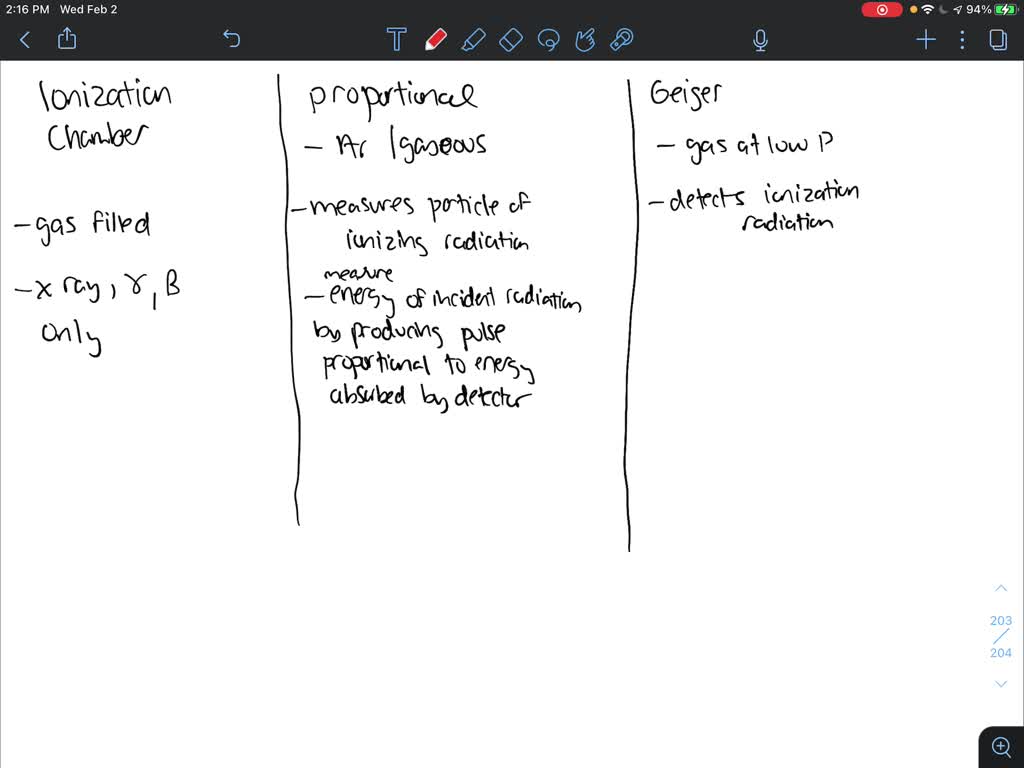 2:16 PM Wed Feb 2
94%
Ionization
Chamber
- gas filled
- x ray, γ, β
only
proportional
- Ar / gaseous
- measures particle of
ionizing radiation
measure
- energy of incident radiation
by producing pulse
proportional to energy
absorbed by detector
Geiger
- gas at low P
- detects ionization
radiation
203
204